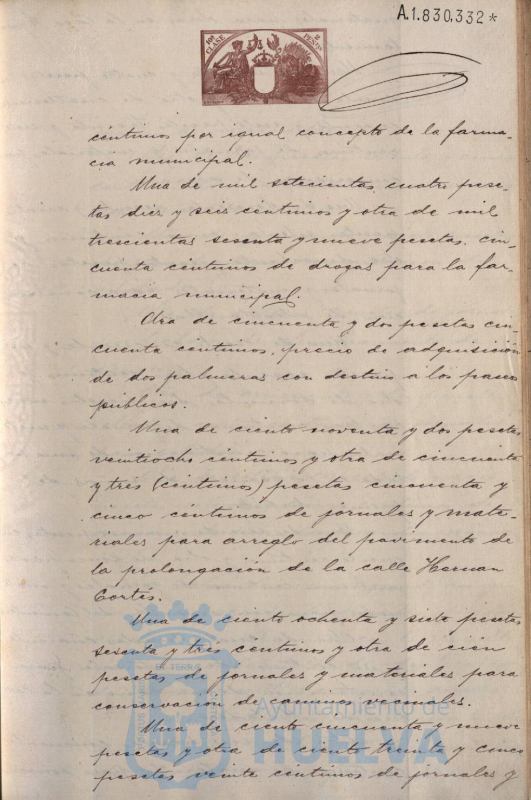 A.1.830.332*
10ª CLASE 2 PESTS
céntimos por igual concepto de la farma-
cia municipal.
Una de mil setecientas cuatro pese-
tas diez y seis céntimos y otra de mil
trescientas sesenta y nueve pesetas, cin-
cuenta céntimos de drogas para la far-
macia municipal.
Ora de cincuenta y dos pesetas cin
cuenta céntimos, precio de adquisición
de dos palmeras con destino a los paseos
públicos.
Una de ciento noventa y dos pesetas
veintiocho céntimos y otra de cincuenta
y tres (céntimos) pesetas cincuenta y
cinco céntimos de jornales y mate-
riales para arreglo del pavimento de
la prolongación de la calle Hernan
Cortés.
Una de ciento ochenta y siete pesetas
sesenta y tres céntimos y otra de cien
pesetas de jornales y materiales para
conservación de caminos vecinales.
Una de ciento cincuenta y nueve
pesetas y otra de ciento treinta y cinco
pesetas veinte céntimos de jornales y
Ayuntamiento de
HUELVA